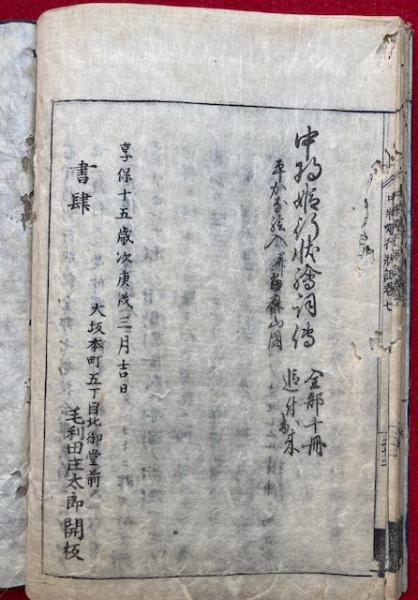 中将姫行状繪詞傳
全部十冊
平かな絵入并當麻山図
追付出来
享保十五歳次庚戌三月吉日
書肆
大坂本町五丁目北御堂前
毛利田庄太郎開板
中將姫行狀記卷七